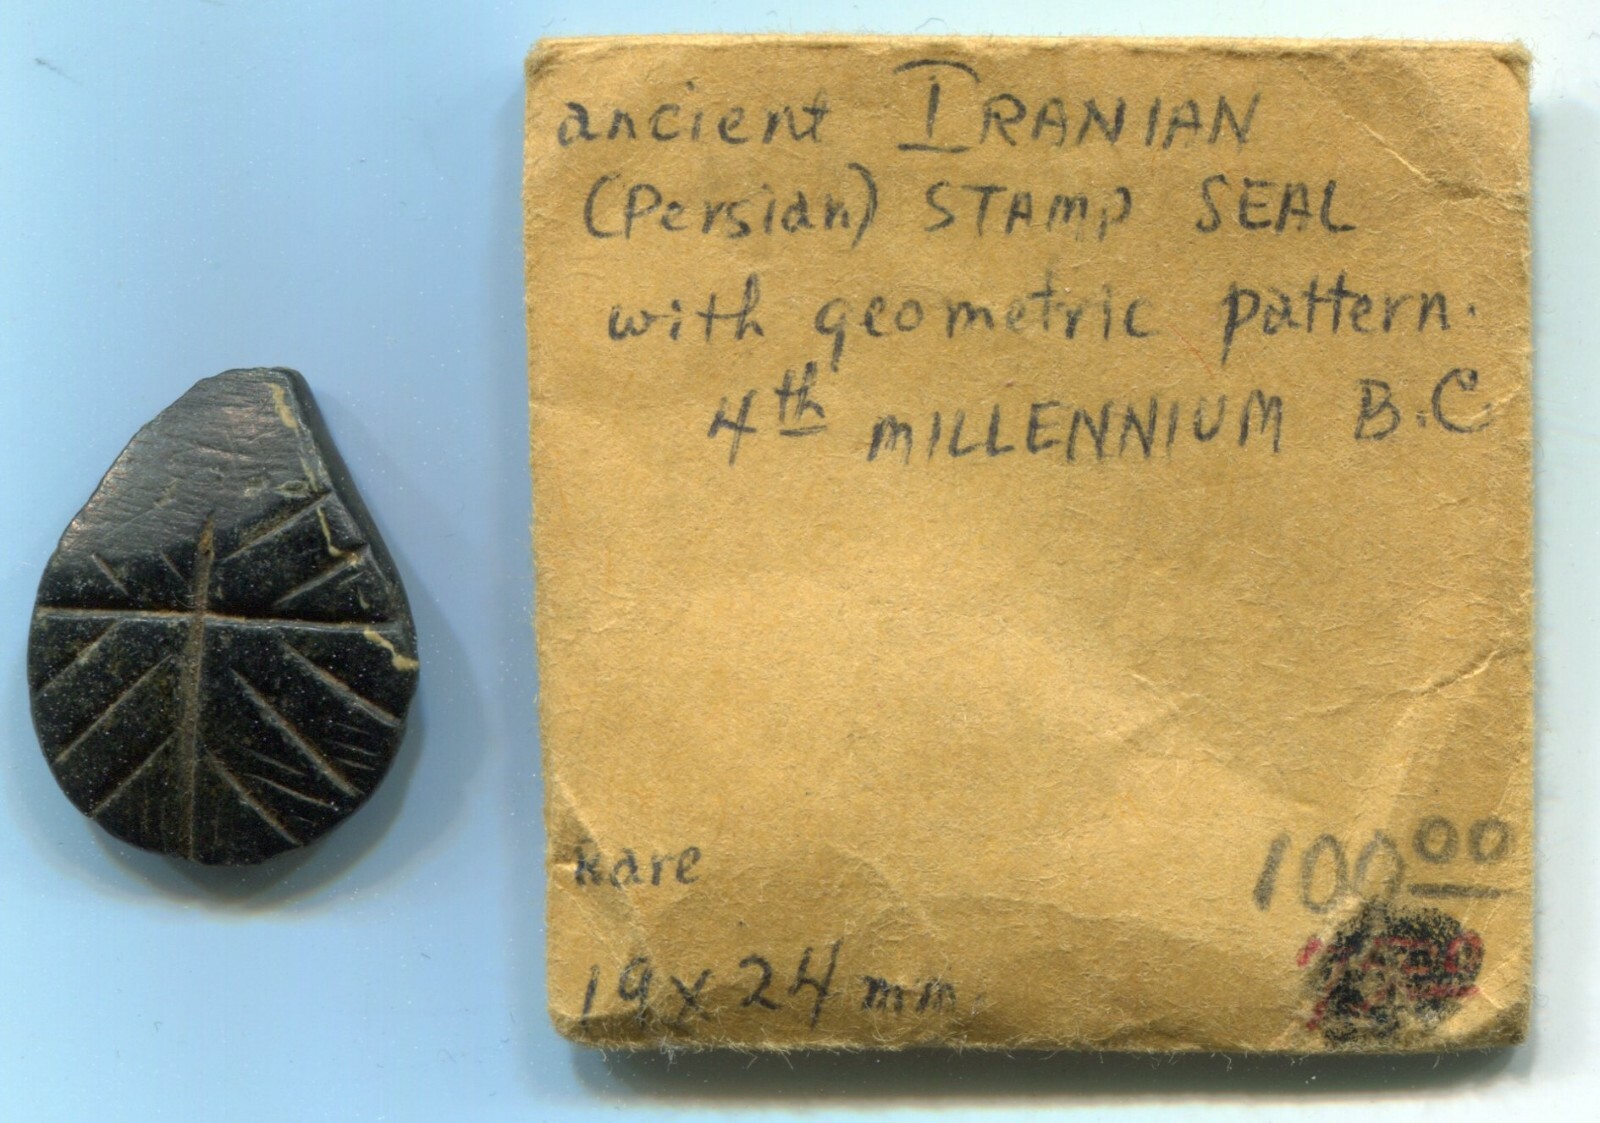 ancient IRANIAN
(Persian) STAMP SEAL
with geometric pattern.
4th MILLENNIUM B.C
Rare
100 00
19 x 24 mm.